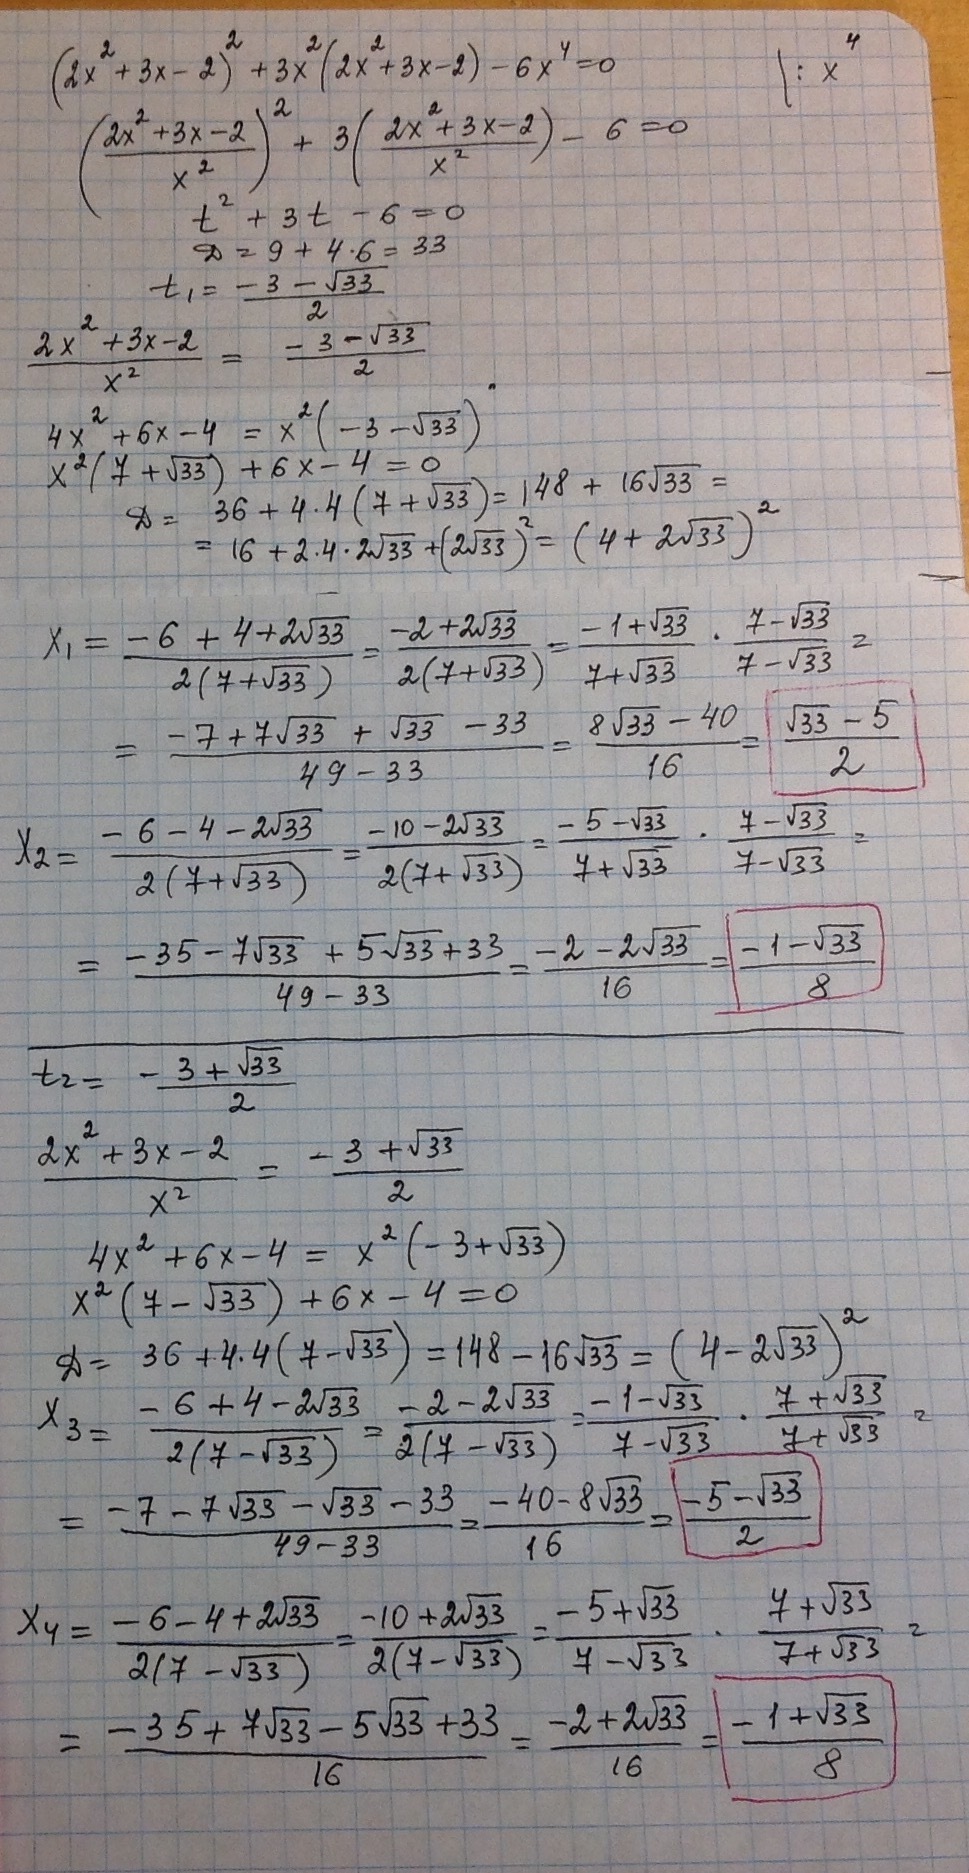 (2x² + 3x - 2)² + 3x²(2x² + 3x - 2) - 6x⁴ = 0 | : x⁴
((2x² + 3x - 2)/x²)² + 3((2x² + 3x - 2)/x²) - 6 = 0
t² + 3t - 6 = 0
D = 9 + 4·6 = 33
t₁ = (-3 - √33)/2
(2x² + 3x - 2)/x² = (-3 - √33)/2
4x² + 6x - 4 = x²(-3 - √33)
x²(7 + √33) + 6x - 4 = 0
D = 36 + 4·4(7 + √33) = 148 + 16√33 =
= 16 + 2·4·2√33 + (2√33)² = (4 + 2√33)²
x₁ = (-6 + 4 + 2√33)/(2(7 + √33)) = (-2 + 2√33)/(2(7 + √33)) = (-1 + √33)/(7 + √33) · (7 - √33)/(7 - √33) =
= (-7 + 7√33 + √33 - 33)/(49 - 33) = (8√33 - 40)/16 = (√33 - 5)/2
x₂ = (-6 - 4 - 2√33)/(2(7 + √33)) = (-10 - 2√33)/(2(7 + √33)) = (-5 - √33)/(7 + √33) · (7 - √33)/(7 - √33) =
= (-35 - 7√33 + 5√33 + 33)/(49 - 33) = (-2 - 2√33)/16 = (-1 - √33)/8
t₂ = -(3 + √33)/2
(2x² + 3x - 2)/x² = -(3 + √33)/2
4x² + 6x - 4 = x²(-3 + √33)
x²(7 - √33) + 6x - 4 = 0
D = 36 + 4·4(7 - √33) = 148 - 16√33 = (4 - 2√33)²
x₃ = (-6 + 4 - 2√33)/(2(7 - √33)) = (-2 - 2√33)/(2(7 - √33)) = (-1 - √33)/(7 - √33) · (7 + √33)/(7 + √33) =
= (-7 - 7√33 - √33 - 33)/(49 - 33) = (-40 - 8√33)/16 = (-5 - √33)/2
x₄ = (-6 - 4 + 2√33)/(2(7 - √33)) = (-10 + 2√33)/(2(7 - √33)) = (-5 + √33)/(7 - √33) · (7 + √33)/(7 + √33) =
= (-35 + 7√33 - 5√33 + 33)/16 = (-2 + 2√33)/16 = (-1 + √33)/8